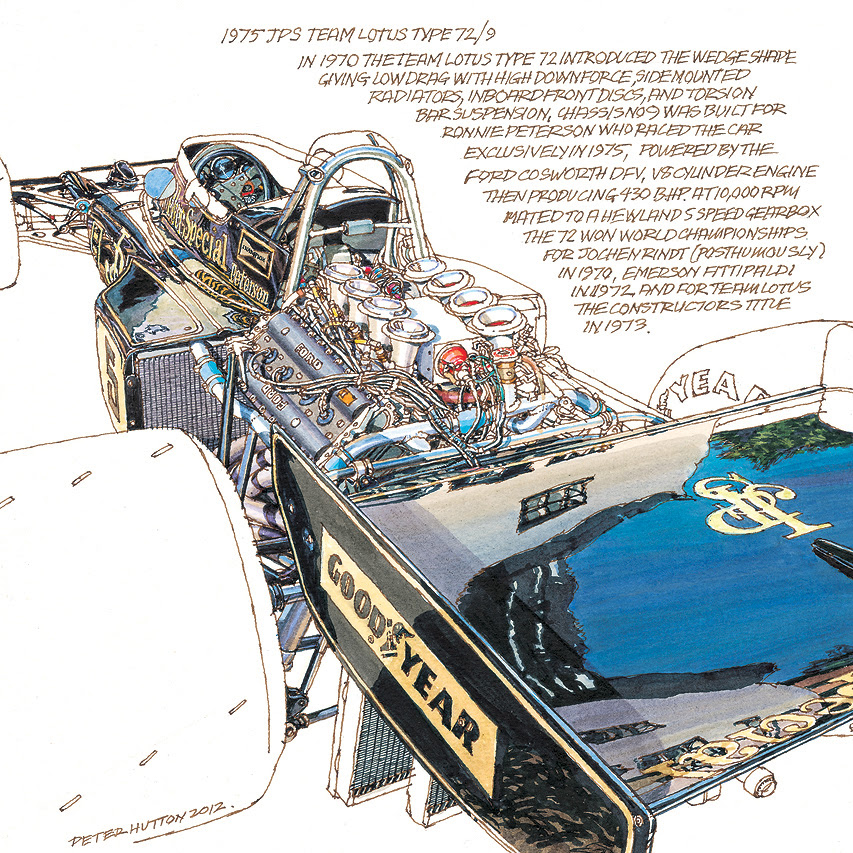 1975 JPS TEAM LOTUS TYPE 72/9
IN 1970 THE TEAM LOTUS TYPE 72 INTRODUCED THE WEDGE SHAPE
GIVING LOW DRAG WITH HIGH DOWNFORCE, SIDE MOUNTED
RADIATORS, INBOARD FRONT DISCS, AND TORSION
BAR SUSPENSION, CHASSIS NO 9 WAS BUILT FOR
RONNIE PETERSON WHO RACED THE CAR
EXCLUSIVELY IN 1975, POWERED BY THE
FORD COSWORTH DFV, V8 CYLINDER ENGINE
THEN PRODUCING 430 BHP. AT 10,000 RPM
MATED TO A HEWLAND 5 SPEED GEARBOX
THE 72 WON WORLD CHAMPIONSHIPS
FOR JOCHEN RINDT (POSTHUMOUSLY)
IN 1970, EMERSON FITTIPALDI
IN 1972, AND FOR TEAM LOTUS
THE CONSTRUCTORS TITLE
IN 1973.
Special
Peterson
FORD
5
YEAR
JPS
GOODYEAR
PETER HUTTON 2012.